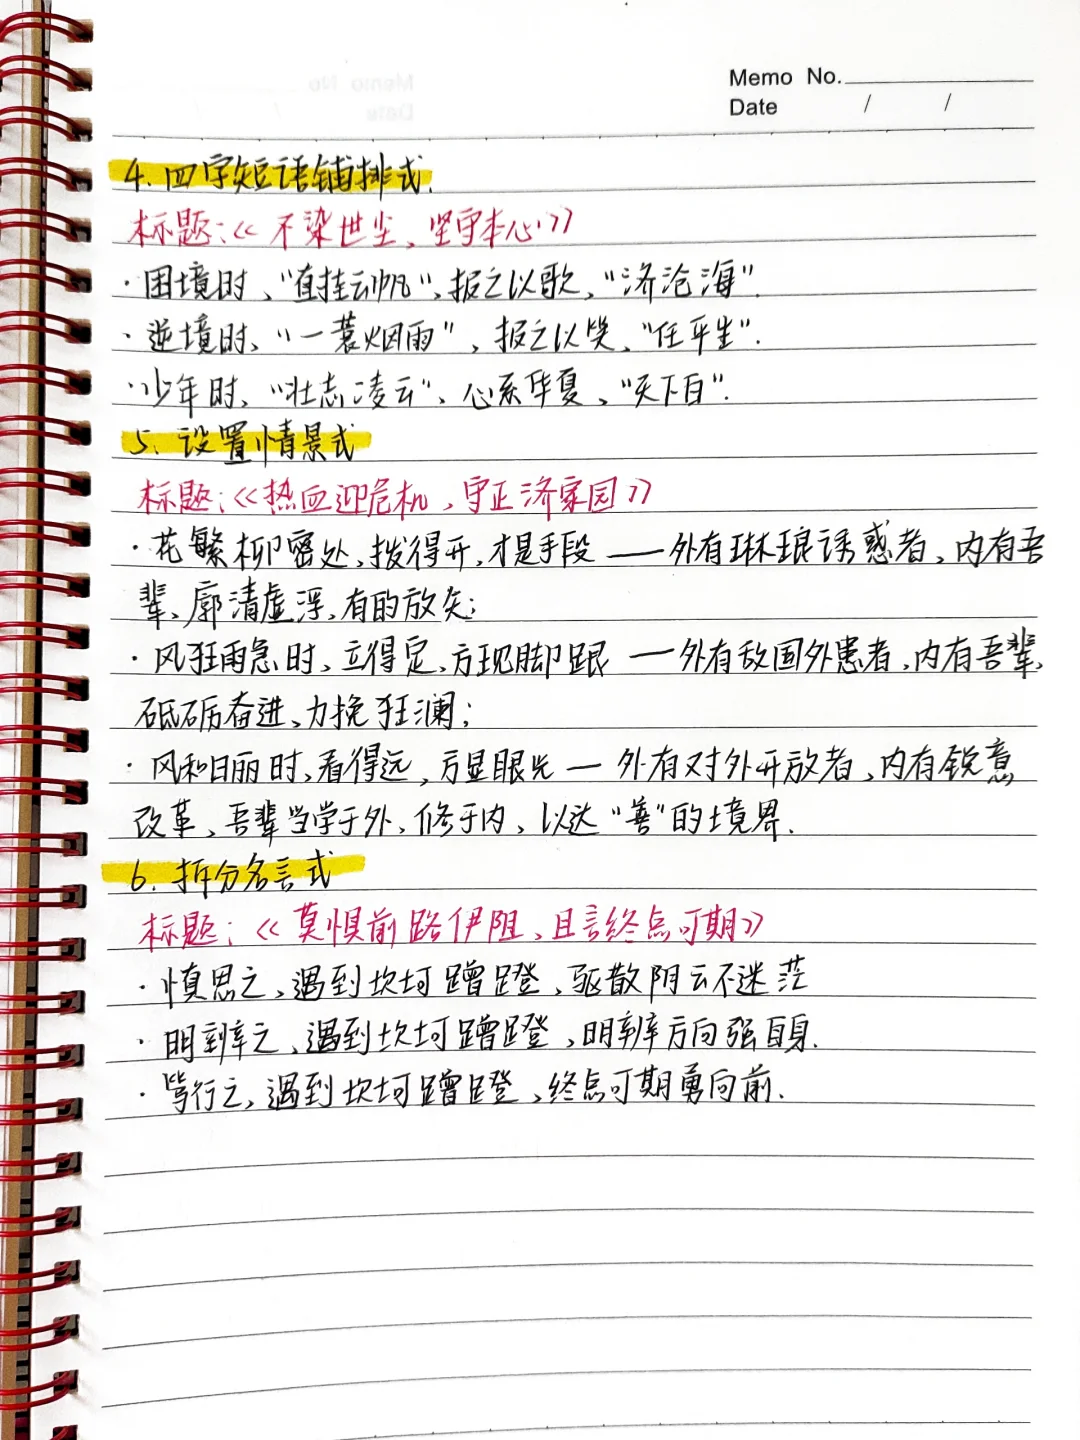 Memo No.
Date / /
4. 四字短语铺排式.
标题:《不染世尘、坚守本心》
·困境时、"直挂云帆",报之以歌、"济沧海".
·逆境时、"一蓑烟雨"、报之以笑、"任平生".
·少年时、"壮志凌云"、心系华夏、"天下白".
5、设置情景式
标题:《热血迎危机、守正济家园》
·花繁柳密处,拨得开,才是手段——外有琳琅诱惑者、内有吾
辈、廓清虚浮、有的放矢;
·风狂雨急时,立得定、方现脚跟——外有敌国外患者、内有吾辈、
砥砺奋进、力挽狂澜;
·风和日丽时、看得远,方显眼光—外有对外开放者、内有锐意
改革、吾辈当学于外,修于内、以达"善"的境界.
6. 拆分名言式
标题:《莫惧前路伊阻、且言终点可期》
·慎思之、遇到坎坷蹭蹬、驱散阴云不迷茫
·明辨之、遇到坎坷蹭蹬、明辨方向强自身.
·笃行之、遇到坎坷蹭蹬、终点可期勇向前.